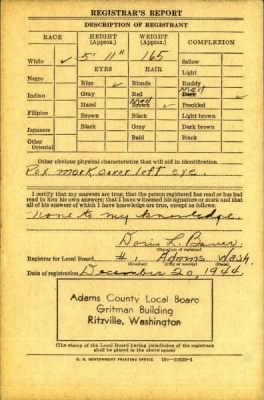 REGISTRAR'S REPORT
DESCRIPTION OF REGISTRANT
RACE
HEIGHT (Approx.)
WEIGHT (Approx.)
COMPLEXION
White ✓
5' 11"
165
Sallow
Light
Negro
EYES
HAIR
Ruddy
Med
Indian
Blue ✓
Blonde
Dark
Gray
Red
Freckled
Med
Filipino
Hazel
Brown ✓
Light brown
Brown
Black
Dark brown
Japanese
Black
Gray
Black
Other
Bald
Other obvious physical characteristics that will aid in identification
Pox mark over left eye.
I certify that my answers are true; that the person registered has read or has had
read to him his own answers; that I have witnessed his signature or mark and that
all of his answers of which I have knowledge are true, except as follows:
None to my knowledge.
Doris L.
(Signature of registrar)
Registrar for Local Board #1 Adams Wash.
(Number) (City or county) (State)
Date of registration December 20, 1944.
Adams County Local Board
Gritman Building
Ritzville, Washington
(The stamp of the Local Board having jurisdiction of the registrant
shall be placed in the above space)
U. S. GOVERNMENT PRINTING OFFICE